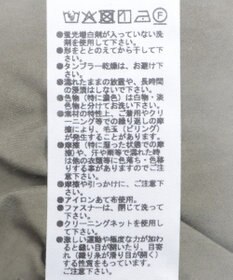 ●蛍光増白剤が入っていない洗
剤を使用して下さい。
●形をととのえてから干して下
さい。
●タンブラー乾燥は、お避け下
さい。
●濡れたままでの放置や、長時間
の浸漬はしないで下さい。
●色物（特に濃色）は白物・淡
色物と分けてお洗い下さい。
●素材の特性上、ご着用やクリ
ーニング等での繰り返しの摩
擦により、毛玉（ピリング）
が発生することがあります。
●摩擦（特に湿った状態での摩
擦）や、汗や雨等で濡れた時
は他の衣類等に色落ち・色移
りする事がありますのでご注
意下さい。
●摩擦や引っかけに、ご注意下
さい。
●アイロンあて布使用。
●ファスナーは、閉じて洗って
下さい。
●クリーニングネットを使用し
て下さい。
●激しい運動や極度な力が加わ
ると縫い目が開いたり、目寄
れ（織り糸が滑り目が開く）
する性質をもっています。